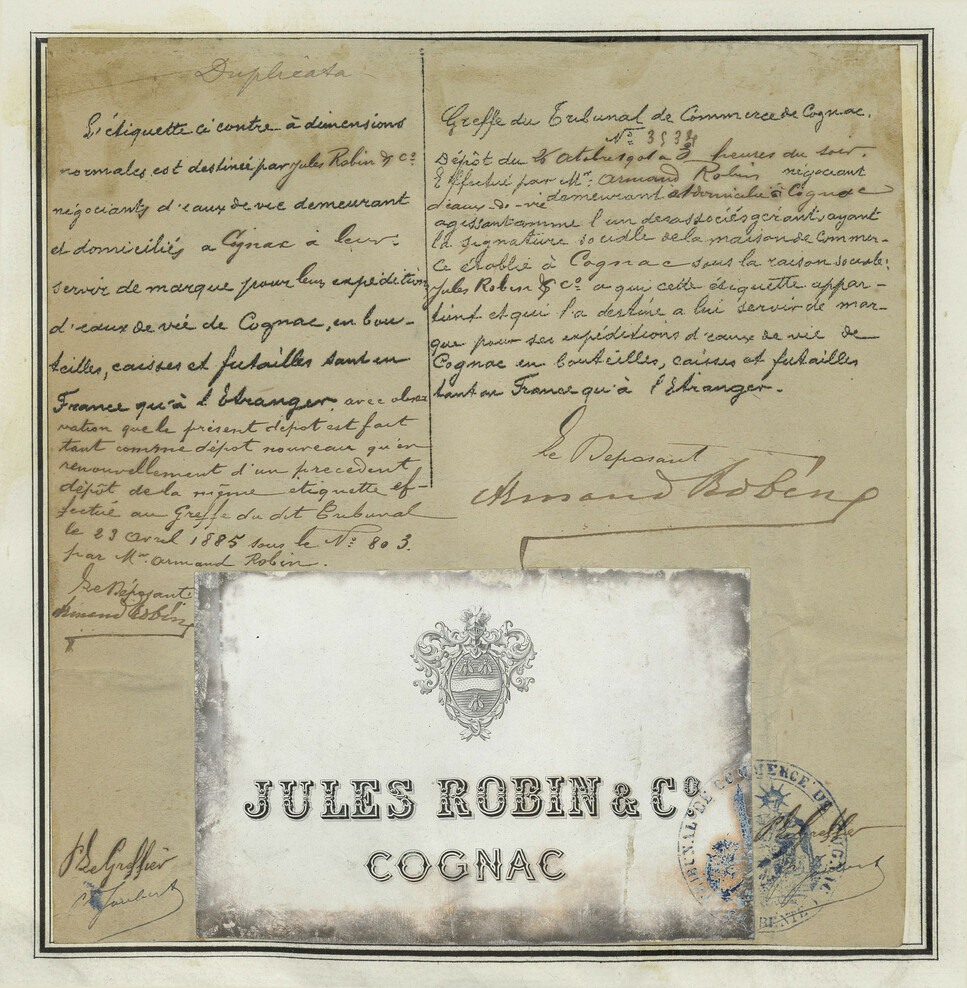 Duplicata
L'étiquette ci contre à dimensions
normales est destinée par Jules Robin & Co
négociants d'eaux de vie demeurant
et domiciliés a Cognac à leur
servir de marque pour leurs expéditions
d'eaux de vie de Cognac, en bou-
teilles, caisses et futailles tant en
France qu'à l'Etranger, avec obser
vation que le présent dépot est fait
tant comme dépot nouveau qu'en
renouvellement d'un precedent
dépôt de la même etiquette ef-
fectué au Greffe du dit Tribunal
le 23 Avril 1885 sous le No 803.
par Mr Armand Robin.
Le Déposant
Armand Robin
Greffe du Tribunal de Commerce de Cognac.
No 3534
Dépôt du Octobre 1901 à 3 heures du soir.
Effectué par Mr Armand Robin négociant
d'eaux-de-vie demeurant et domicilié à Cognac
agissant comme l'un des associés gérant, ayant
la signature sociale de la maison de Commer-
ce établie à Cognac sous la raison sociale:
Jules Robin & Co a qui cette étiquette appar-
tient et qui l'a destiné a lui servir de mar-
que pour ses expéditions d'eaux de vie de
Cognac en bouteilles, caisses et futailles
tant en France qu'à l'Etranger.
Le Deposant
Armand Robin
JULES ROBIN & Co
COGNAC
TRIBUNAL DE COMMERCE DE COGNAC
Le Greffier
Le Greffier